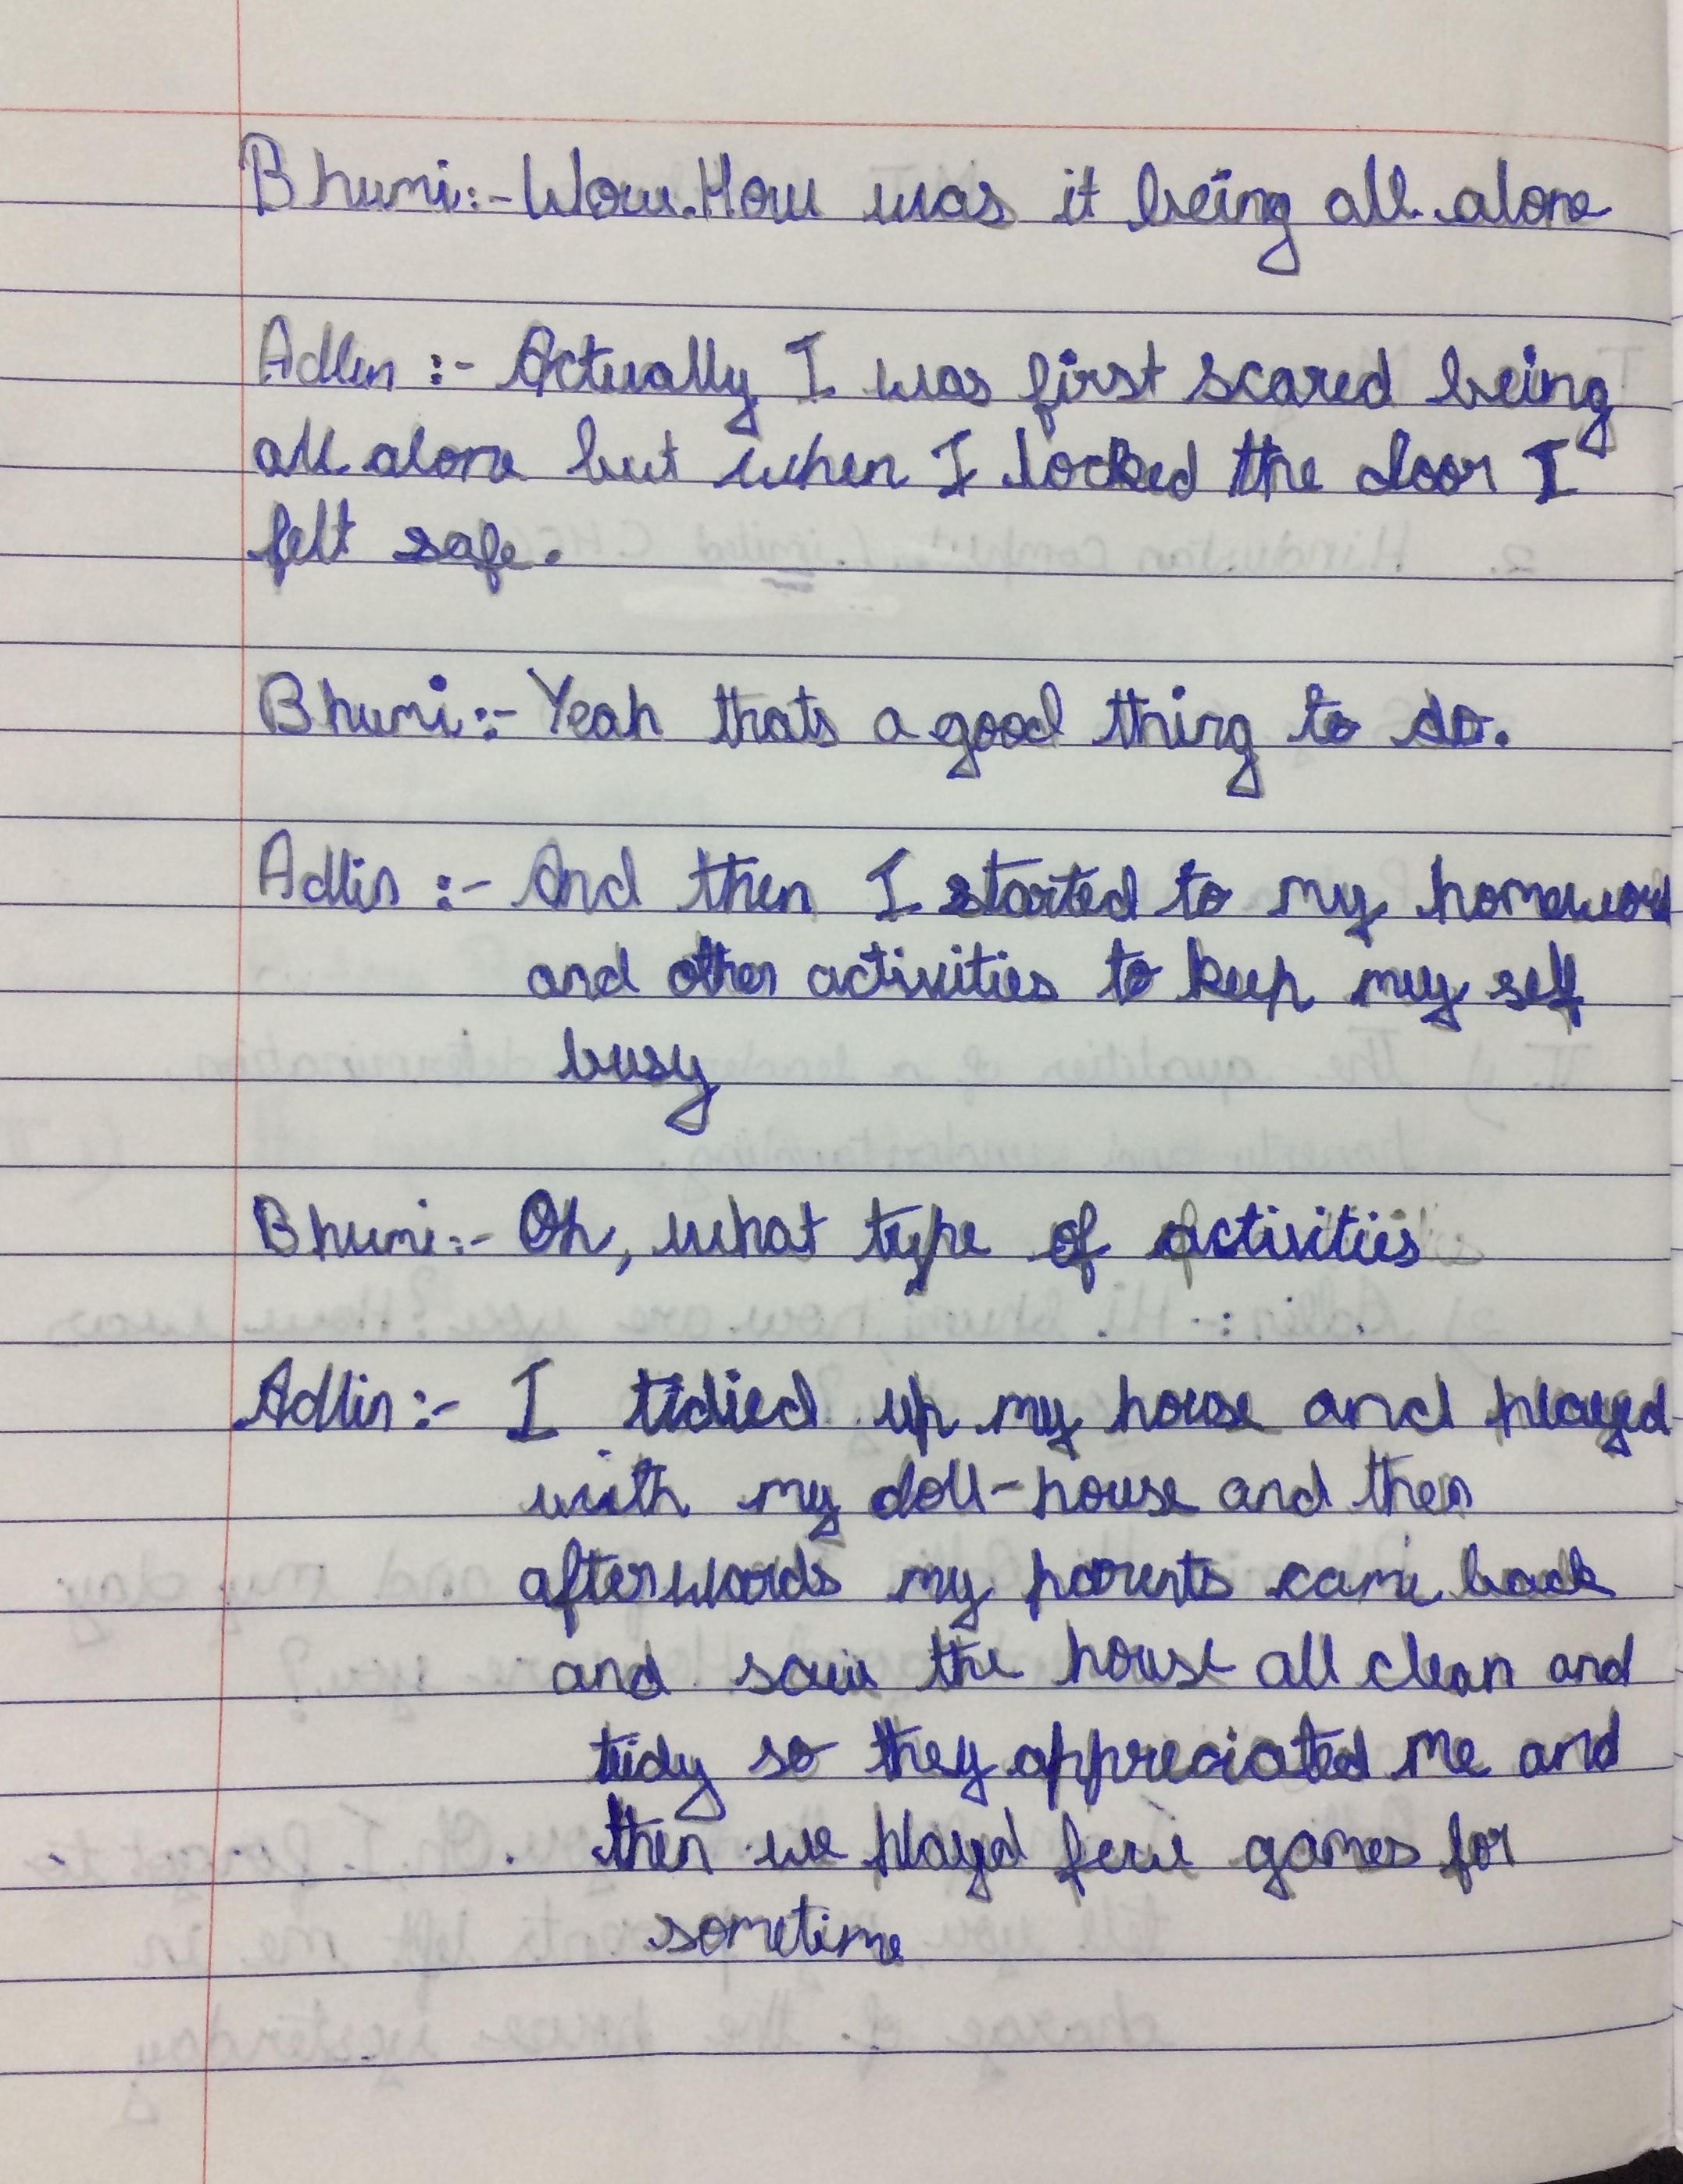 Bhumi:- Wow. How was it being all alone
Adlin :- Actually I was first scared being
all alone but when I locked the door I
felt safe.
Bhumi:- Yeah thats a good thing to do.
Adlin :- And then I started to my homework
and other activities to keep my self
busy
Bhumi:- Oh, what type of activities
Adlin:- I tidied up my house and played
with my doll-house and then
afterwords my parents came back
and saw the house all clean and
tidy so they appreciated me and
then we played few games for
sometime